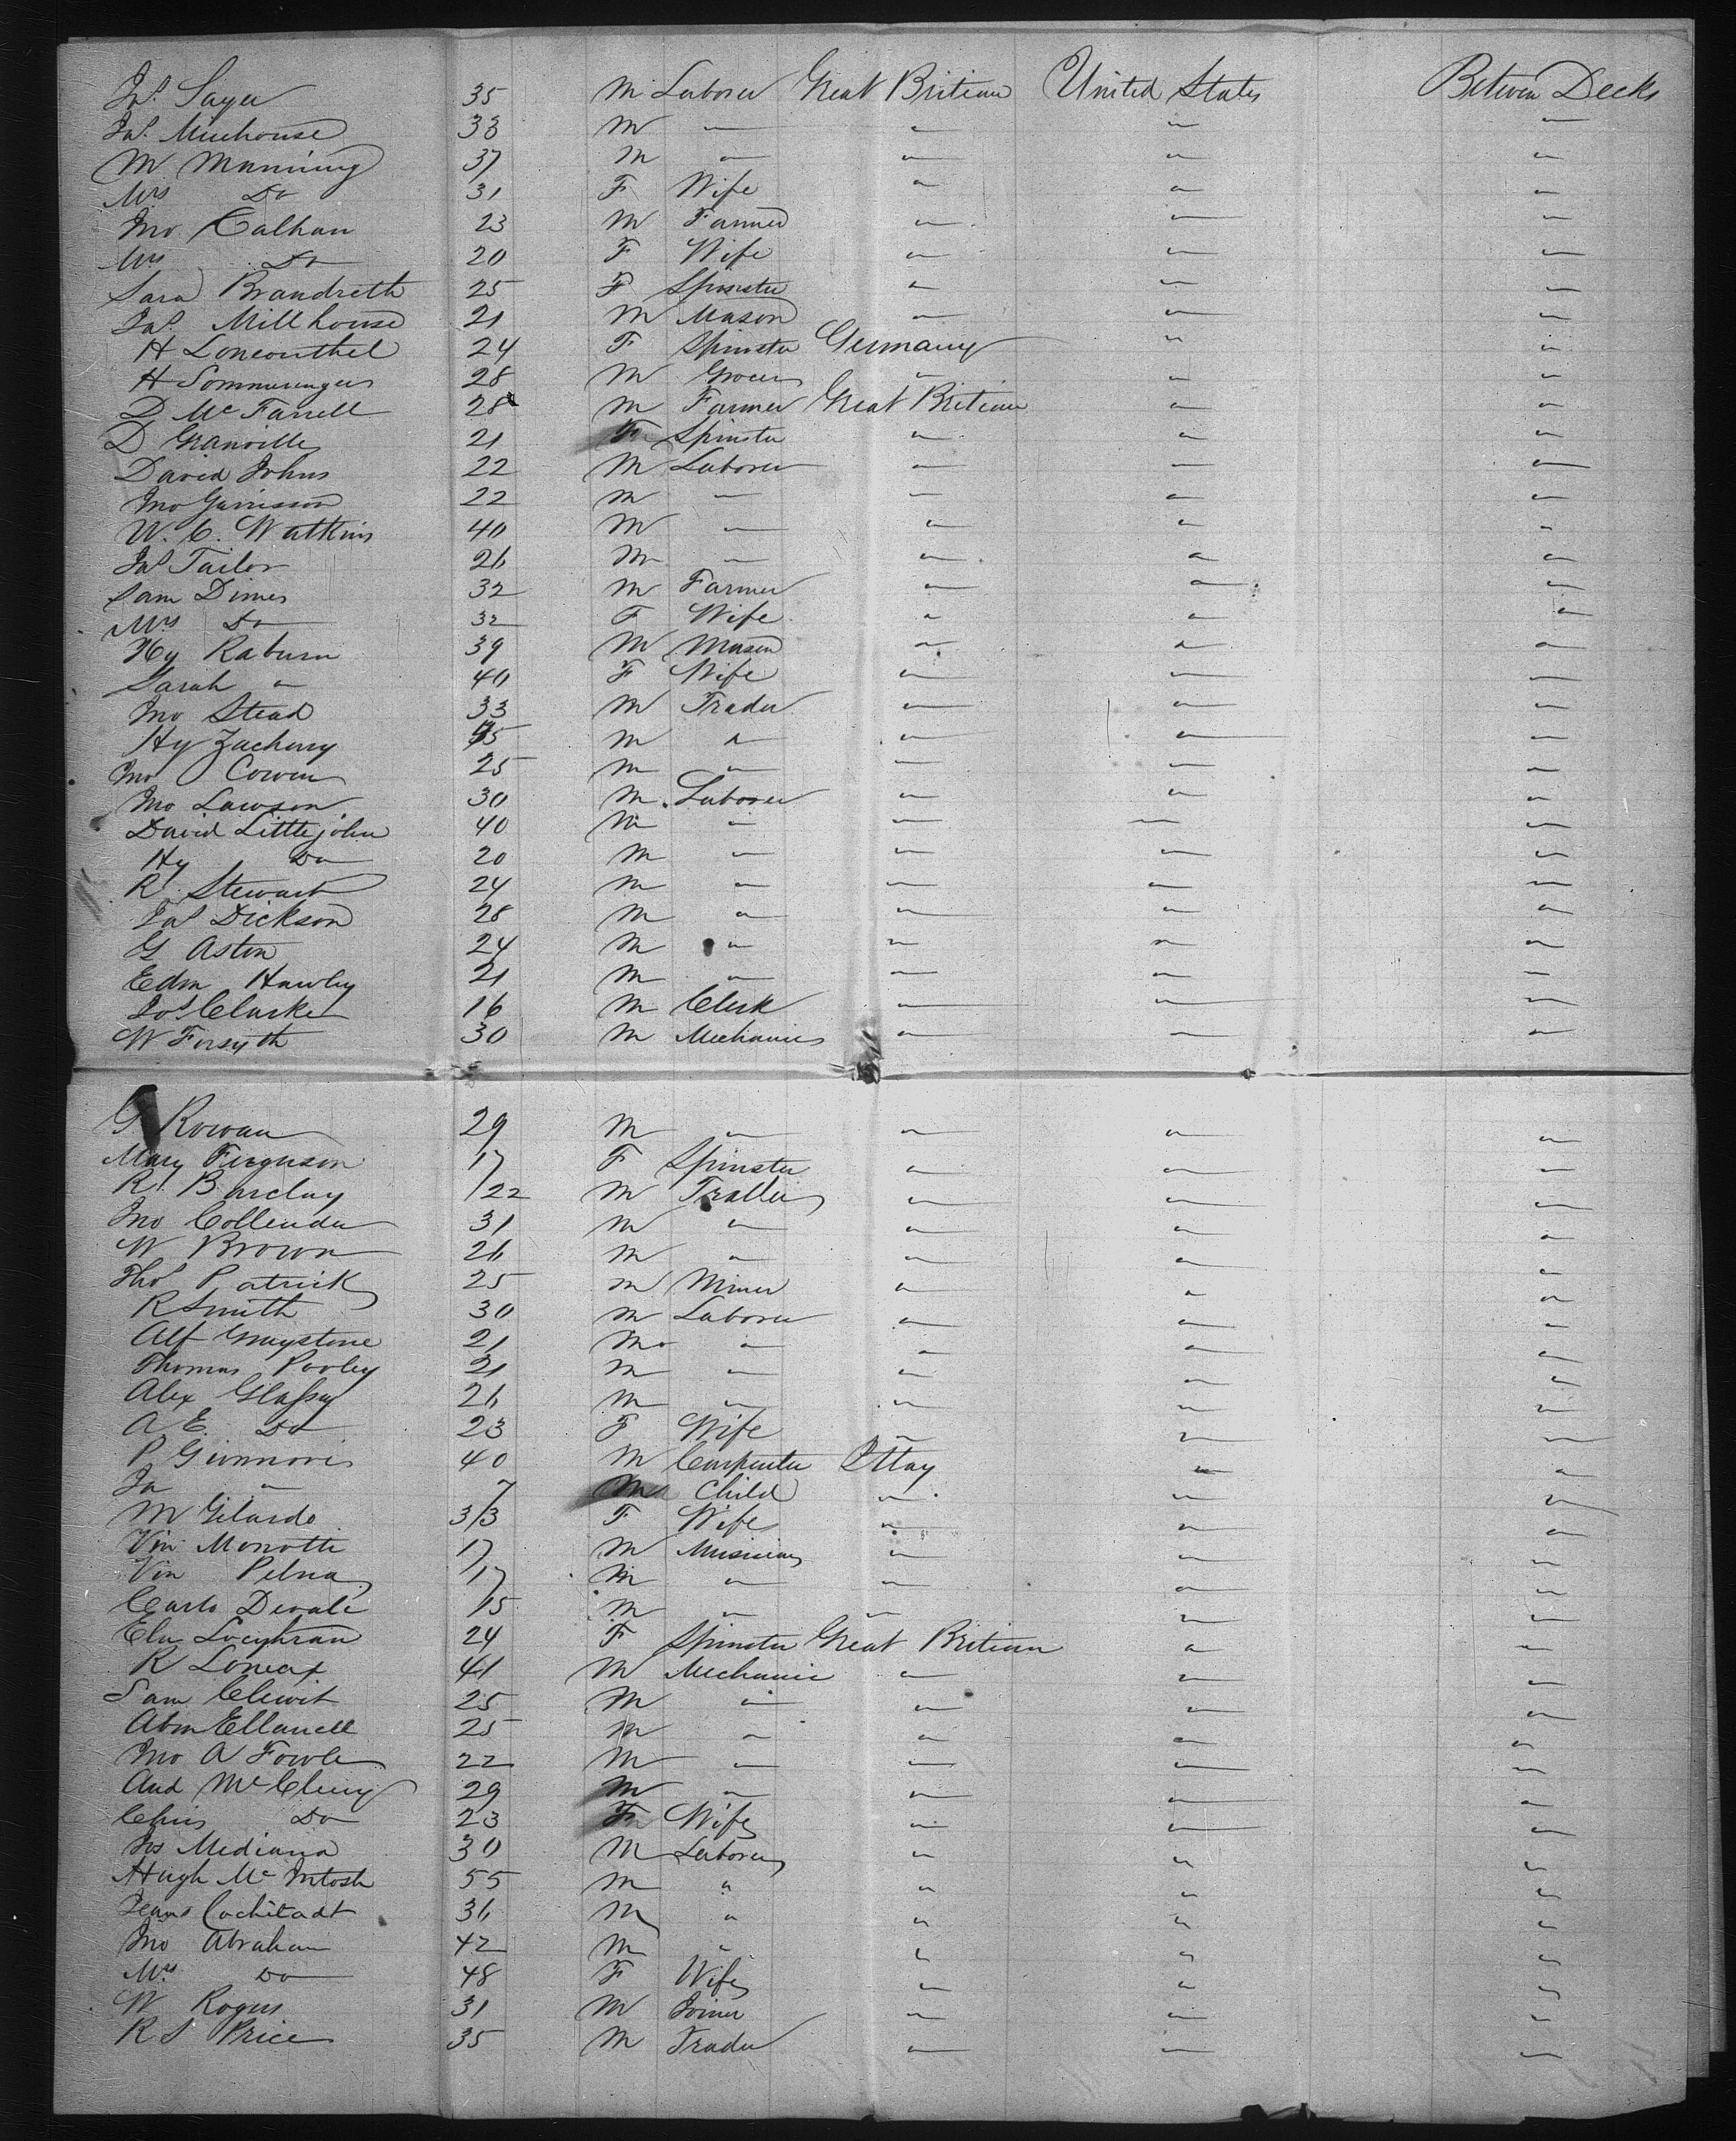 Jas. Sayer 35 M Laborer Great Britian United States Between Decks
Jas. Muchouse 33 M " " " "
M Manning 37 M " " " "
Mrs Do 31 F Wife " " "
Jno Calhan 23 M Farmer " " "
Mrs Do 20 F Wife " " "
Sara Brandreth 25 F Spinster " " "
Jas. Millhouse 21 M Mason " " "
H 24 F Spinster Germany " "
H 28 M Grocer " " "
D McFarrell 28 M Farmer Great Britian " "
D Granville 21 F Spinster " " "
David Johns 22 M Laborer " " "
Jno Garrisson 22 M " " " "
W. C. Watkins 40 M " " " "
Jas Tailor 26 M " " " "
Sam Dimes 32 M Farmer " " "
Mrs Do 32 F Wife " " "
Hy Raburn 39 M Mason " " "
Sarah " 40 F Wife " " "
Jno Stead 33 M Trader " " "
Hy Zachery 45 M " " " "
Jno Cowen 25 M " " " "
Jno Lawson 30 M. Laborer " " "
David Littlejohn 40 M " " " "
Hy Do 20 M " " " "
R. Stewart 24 M " " " "
Jas Dickson 28 M " " " "
G Aston 24 M " " " "
Edm Hawley 21 M " " " "
Jos. Clarke 16 M Clerk " " "
W Forsyth 30 M Mechanic " " "
G Rowan 29 M " " " "
Mary Ferguson 17 F Spinster " " "
R. Barclay 22 M Trader " " "
Jno Collender 31 M " " " "
W Brown 26 M " " " "
Thos Patrick 25 M Miner " " "
R Smith 30 M Laborer " " "
Alf Graystone 21 M " " " "
Thomas Pooley 21 M " " " "
Alex Glassey 26 M " " " "
A E. Do 23 F Wife " " "
P Gionnoris 40 M Carpenter Ittay " "
Ja " 7 M Child " " "
M Gilardo 33 F Wife " " "
Vin Monotti 17 M Musician " " "
Vin Pelna 17 M " " " "
Carlo Devali 15 M " " " "
Eln 24 F Spinster Great Britian " "
R Lomax 41 M Mechanic " " "
Sam Clewit 25 M " " " "
Abm Ellanell 25 M " " " "
Jno A Fowle 22 M " " " "
And McCleny 29 M " " " "
Chris Do 23 F Wife " " "
Jos Mediana 30 M Laborer " " "
Hugh McIntosh 55 M " " " "
Jeans Cochitadt 36 M " " " "
Jno Abraham 42 M " " " "
Mrs. Do 48 F Wife " " "
W Rogers 31 M Joiner " " "
R S Price 35 M Trader " " "